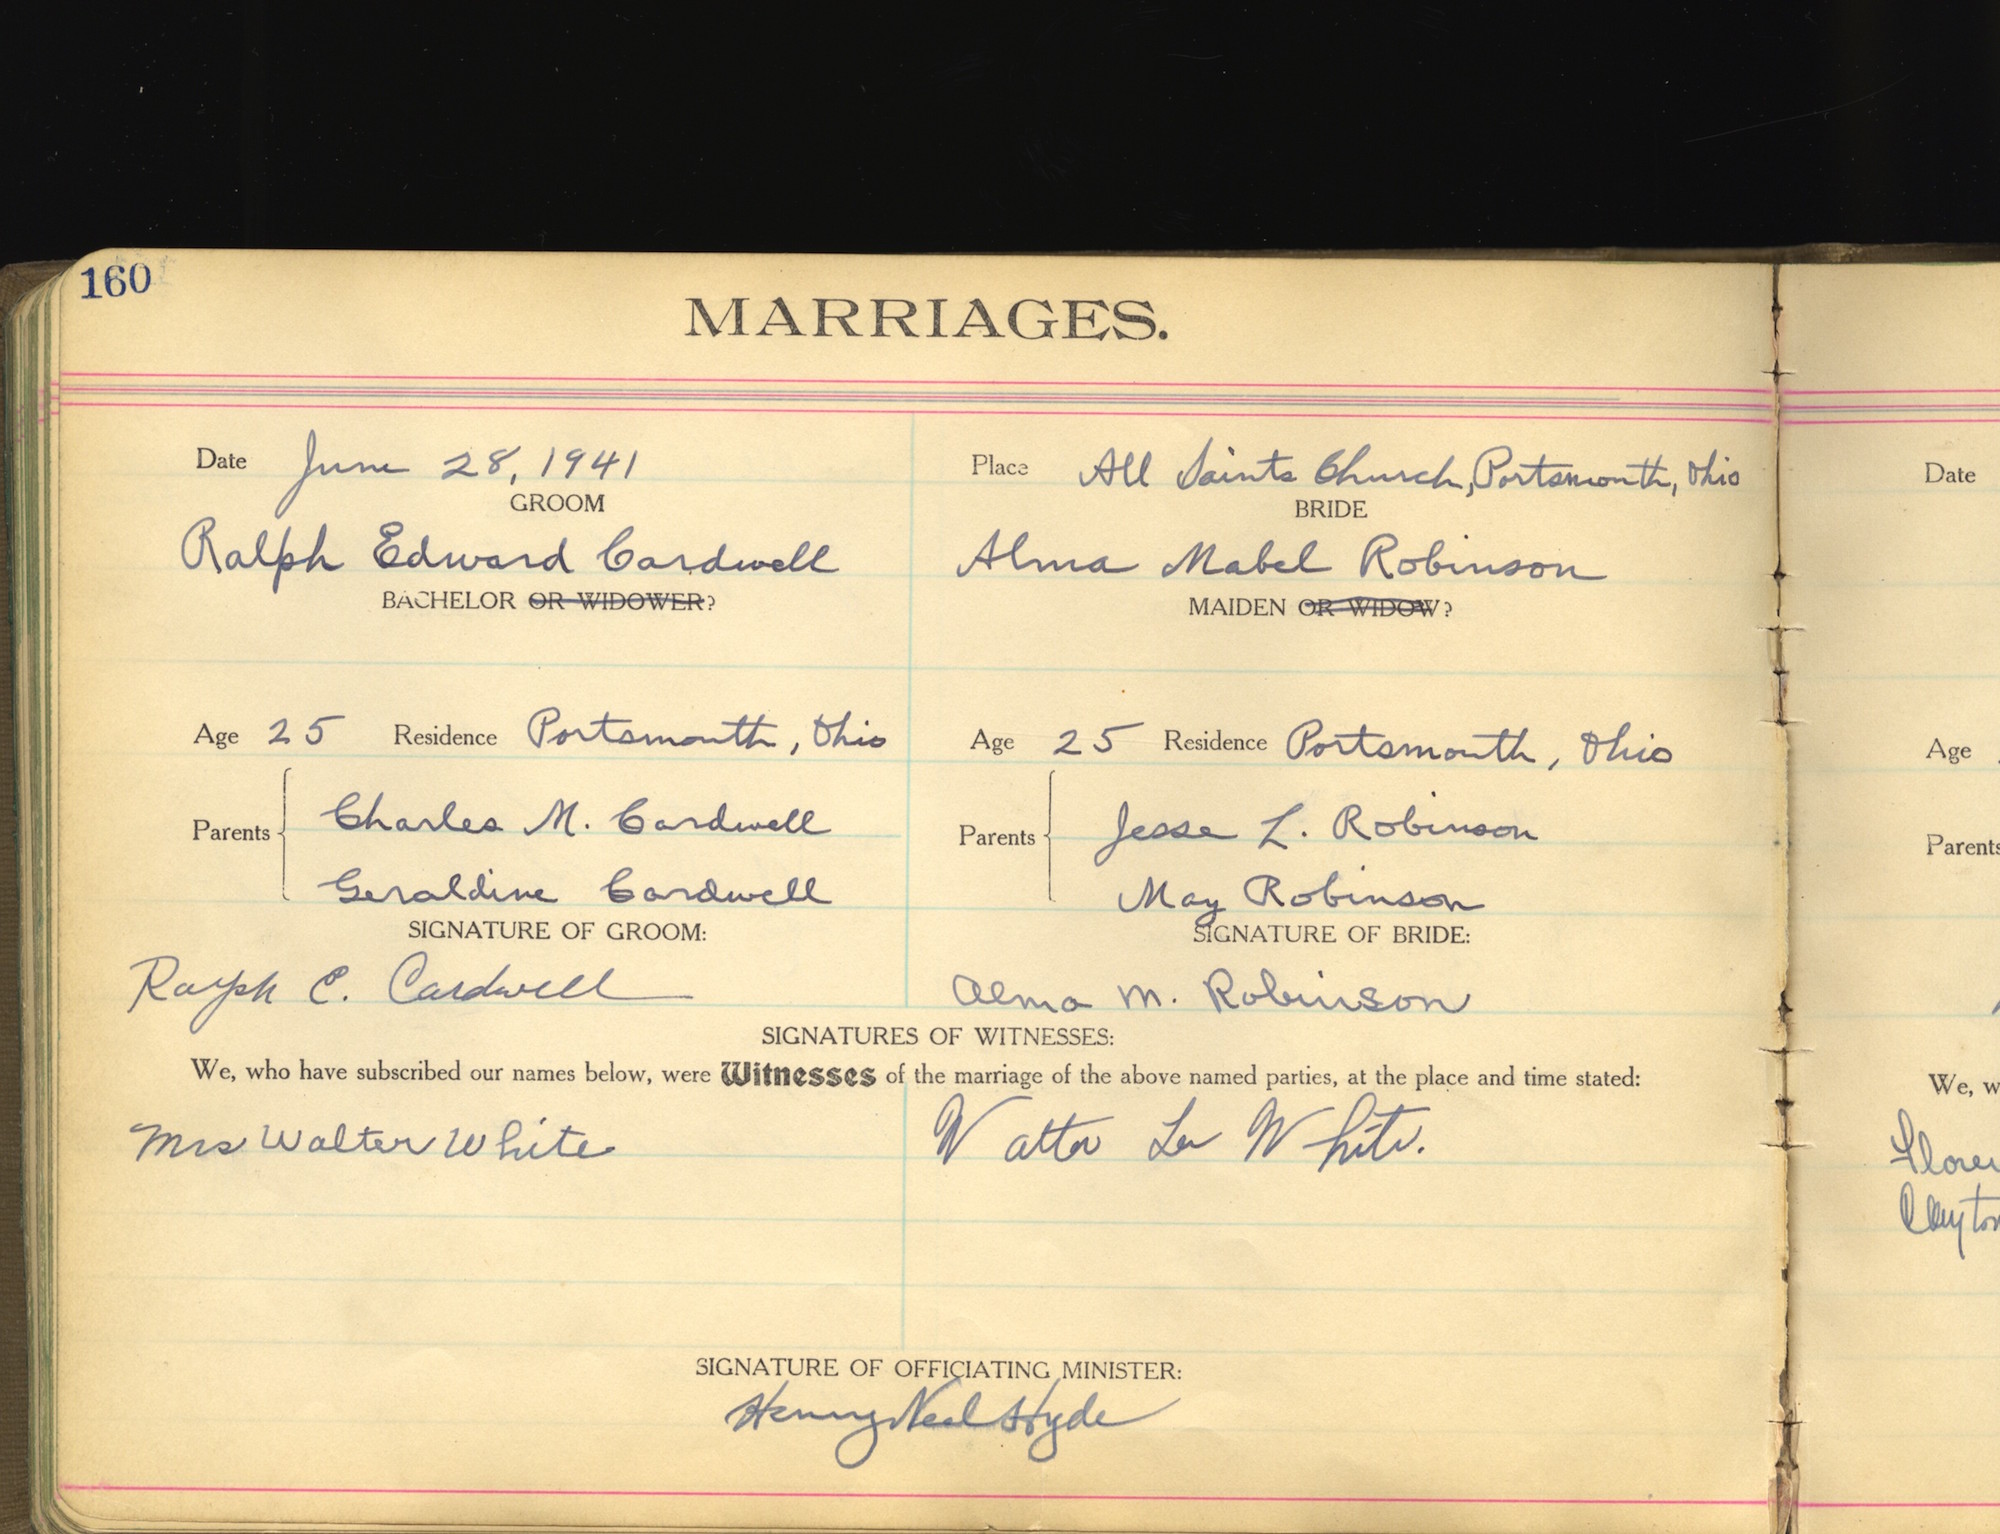 160
MARRIAGES.
Date June 28, 1941
Place All Saints Church, Portsmouth, Ohio
GROOM
BRIDE
Ralph Edward Cardwell
Alma Mabel Robinson
BACHELOR OR WIDOWER?
MAIDEN OR WIDOW?
Age 25 Residence Portsmouth, Ohio
Age 25 Residence Portsmouth, Ohio
Parents
Charles M. Cardwell
Geraldine Cardwell
Parents
Jesse L. Robinson
May Robinson
SIGNATURE OF GROOM:
SIGNATURE OF BRIDE:
Ralph E. Cardwell
Alma M. Robinson
SIGNATURES OF WITNESSES:
We, who have subscribed our names below, were Witnesses of the marriage of the above named parties, at the place and time stated:
Mrs Walter White
Walter Lee White.
SIGNATURE OF OFFICIATING MINISTER:
Henry Neal Hyde
Date
Age
Parents
We, w